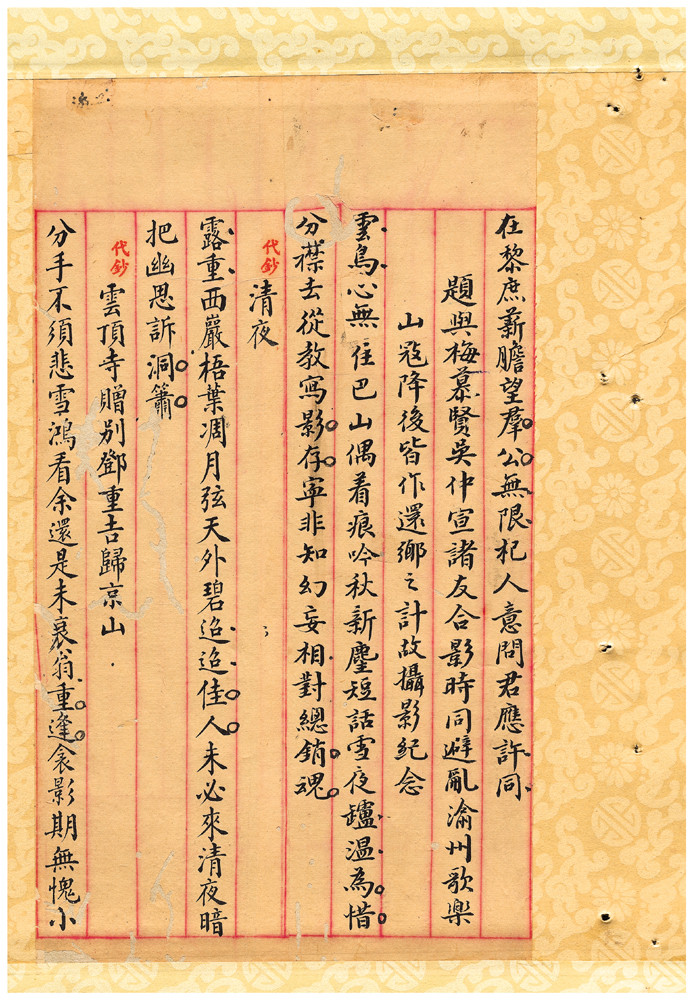 在黎庶薪膽望羣公無限杞人意問君應許同
題與梅慕賢吳仲宣諸友合影時同避亂渝州歌樂
山寇降後皆作還鄉之計故攝影紀念
雲鳥心無住巴山偶着痕吟秋新麈短話雪夜罏溫為惜
分襟去從教寫影存寧非知幻妄相對總銷魂
代鈔 清夜
露重西巖梧葉凋月弦天外碧迢迢佳人未必來清夜暗
把幽思訴洞簫
代鈔 雲頂寺贈別鄧重吉歸京山
分手不須悲雪鴻看余還是未衰翁重逢衾影期無愧小